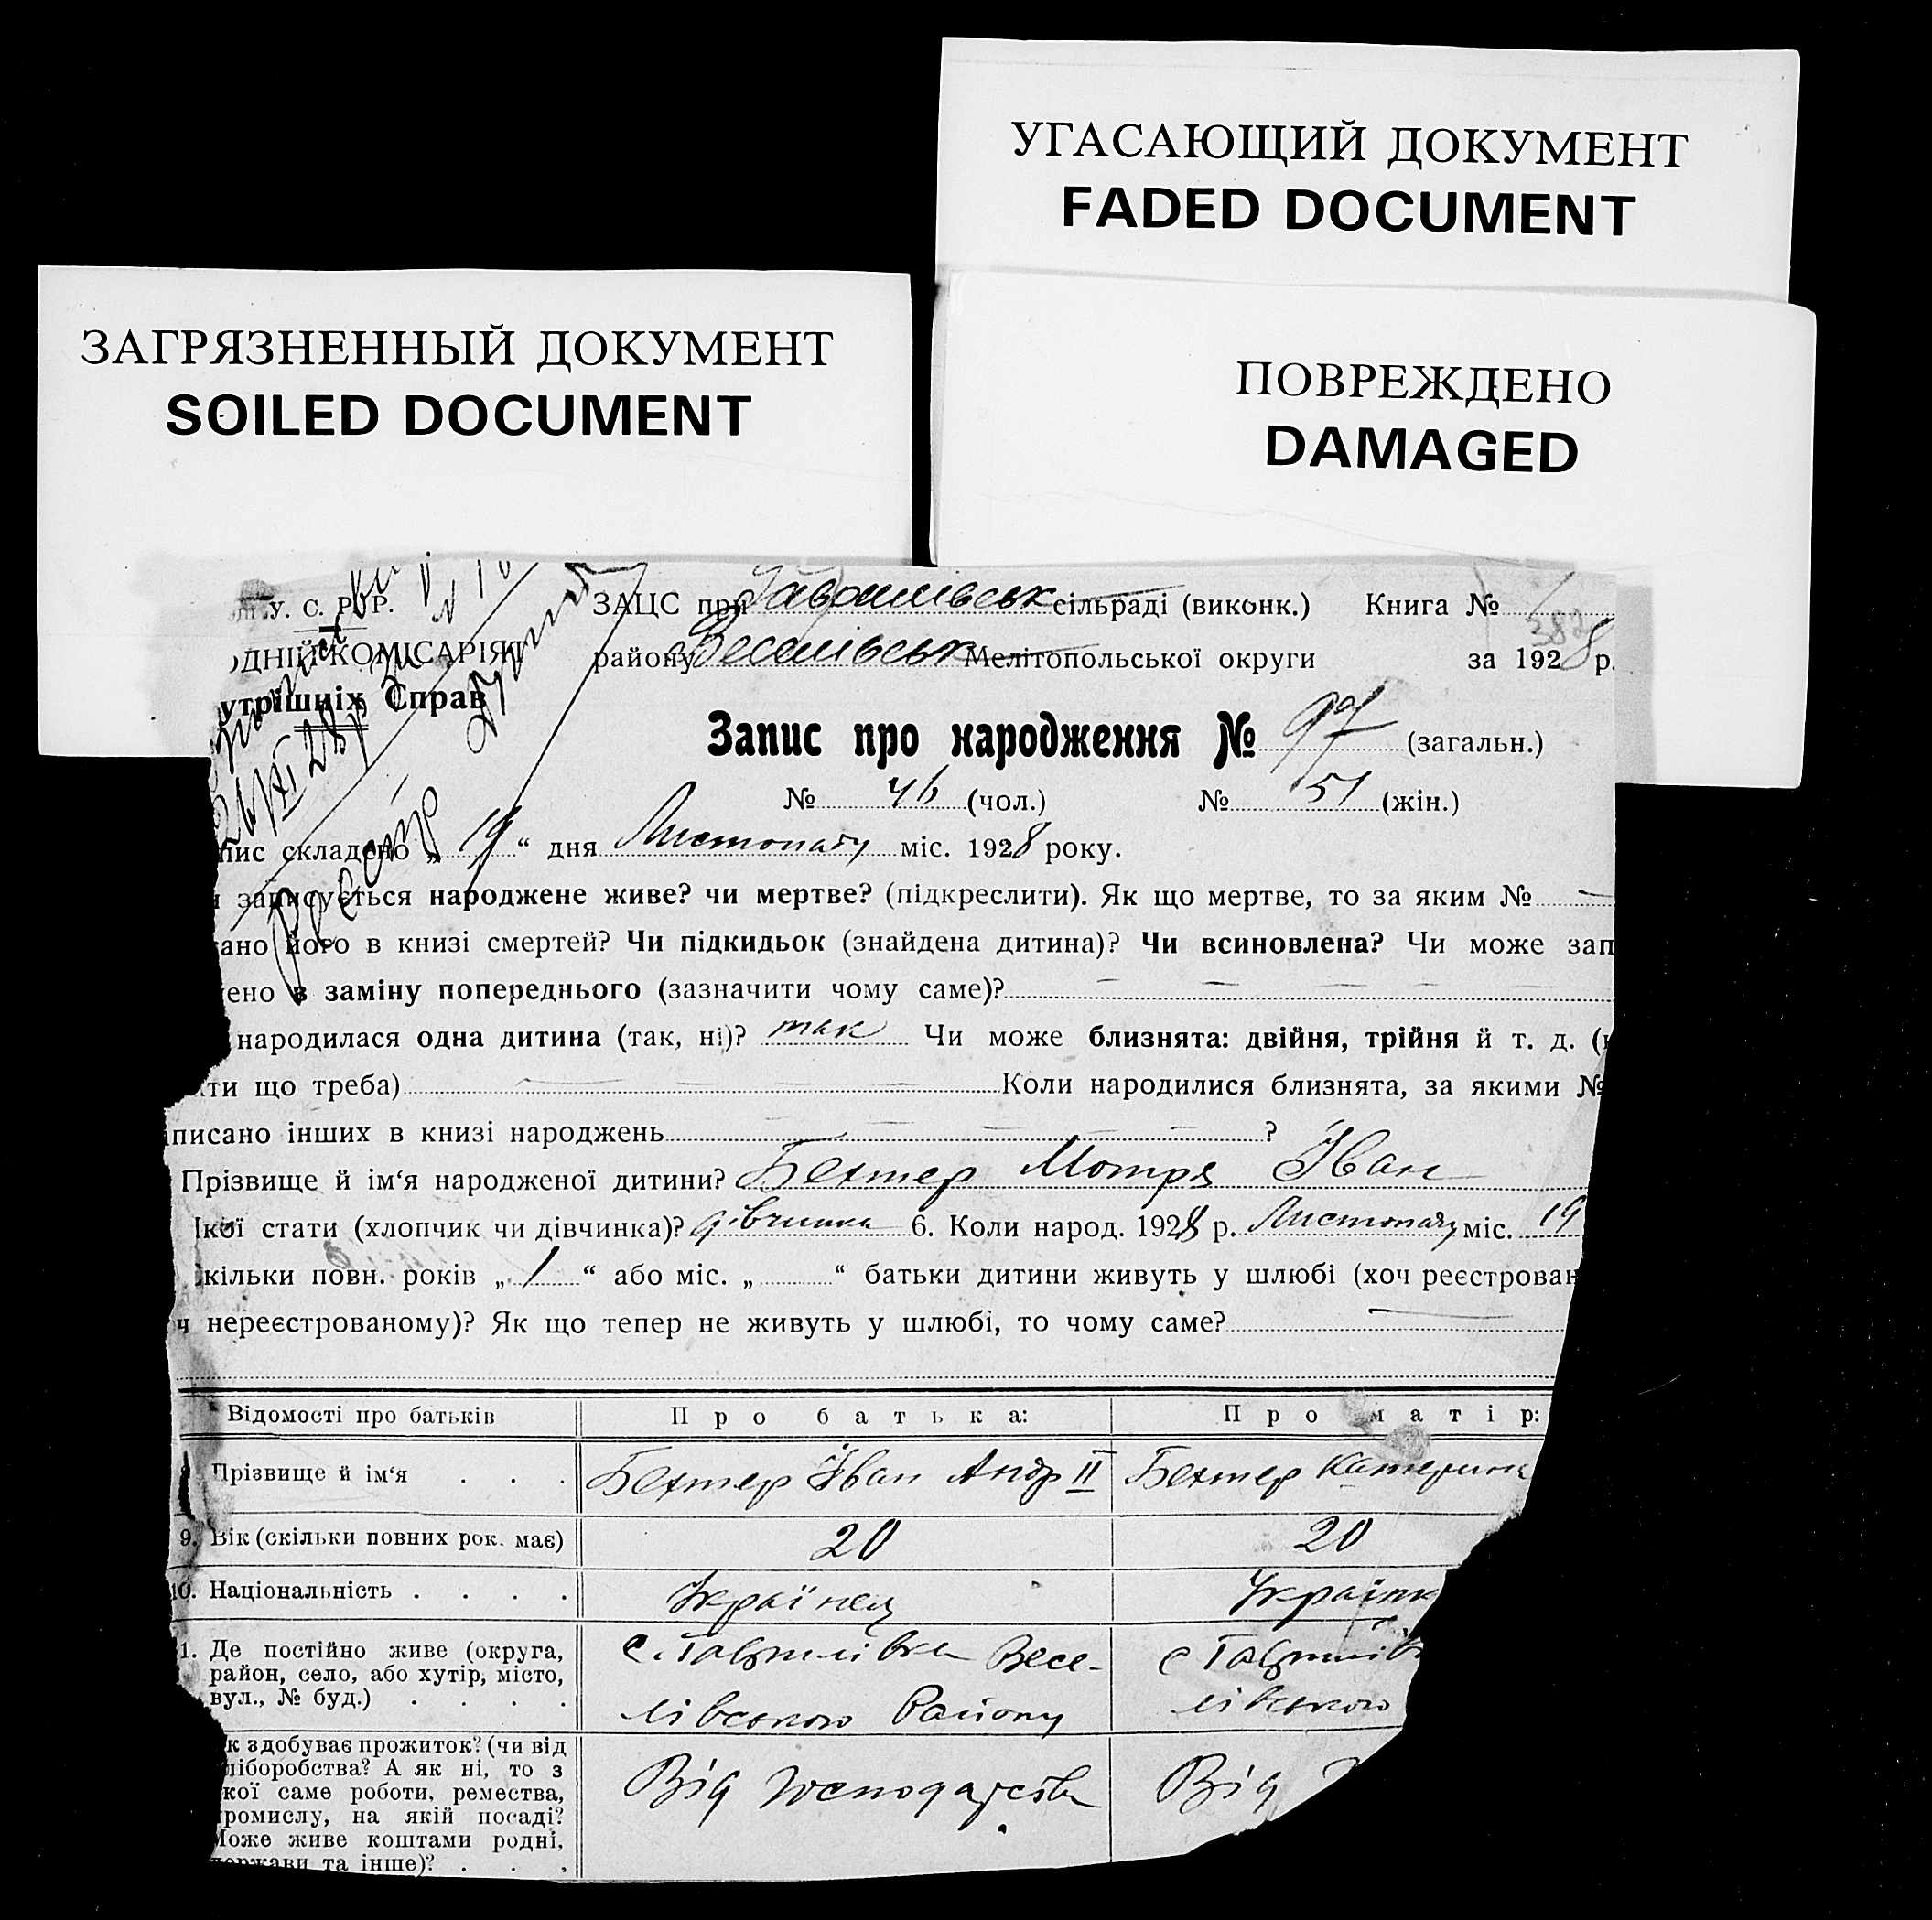 УГАСАЮЩИЙ ДОКУМЕНТ
FADED DOCUMENT
ЗАГРЯЗНЕННЫЙ ДОКУМЕНТ
SOILED DOCUMENT
ПОВРЕЖДЕНО
DAMAGED
У. С. Р. Р.
ОДНІЙ КОМІСАРІЯТ
утрішніх Справ
26/XI 28 р
Реєстр
ЗАЦС при Гаврилівськ сільраді (виконк.) Книга №
382
району Веселівськ Мелітопольської округи за 1928 р.
Запис про народження № 97 (загальн.)
№ 46 (чол.) № 51 (жін.)
пис складено „ 19 “ дня Листопаду міс. 1928 року.
записується народжене живе? чи мертве? (підкреслити). Як що мертве, то за яким № —
ано його в книзі смертей? Чи підкидьок (знайдена дитина)? Чи всиновлена? Чи може зап
ено в заміну попереднього (зазначити чому саме)? — — — — —
народилася одна дитина (так, ні)? так Чи може близнята: двійня, трійня й т. д. (
ти що треба) — — — — Коли народилися близнята, за якими №
писано інших в книзі народжень — — — — ?
Прізвище й ім‘я народженої дитини? Бехтер Мотря Іван
кої стати (хлопчик чи дівчинка)? дівчинка 6. Коли народ. 1928 р. Листопаду міс. 19
кільки повн. років „ 1 “ або міс. „ “ батьки дитини живуть у шлюбі (хоч реєстрован
ч нереєстрованому)? Як що тепер не живуть у шлюбі, то чому саме? —
Відомості про батьків Про батька: Про матір:
Прізвище й ім‘я . . . Бехтер Іван Андр II Бехтер Катерина
9. Вік (скільки повних рок. має) 20 20
10. Національність . . . . Українец Українк
1. Де постійно живе (округа, район, село, або хутір, місто, вул., № буд.) . . . .
с. Гаврилівка Весе-
лівського Району
с Гаврилів
лівського
к здобуває прожиток? (чи від
ліборобства? А як ні, то з
кої саме роботи, ремества,
ромислу, на якій посаді?
Може живе коштами родні,
держави та інше)? . . .
Від господарства
Від